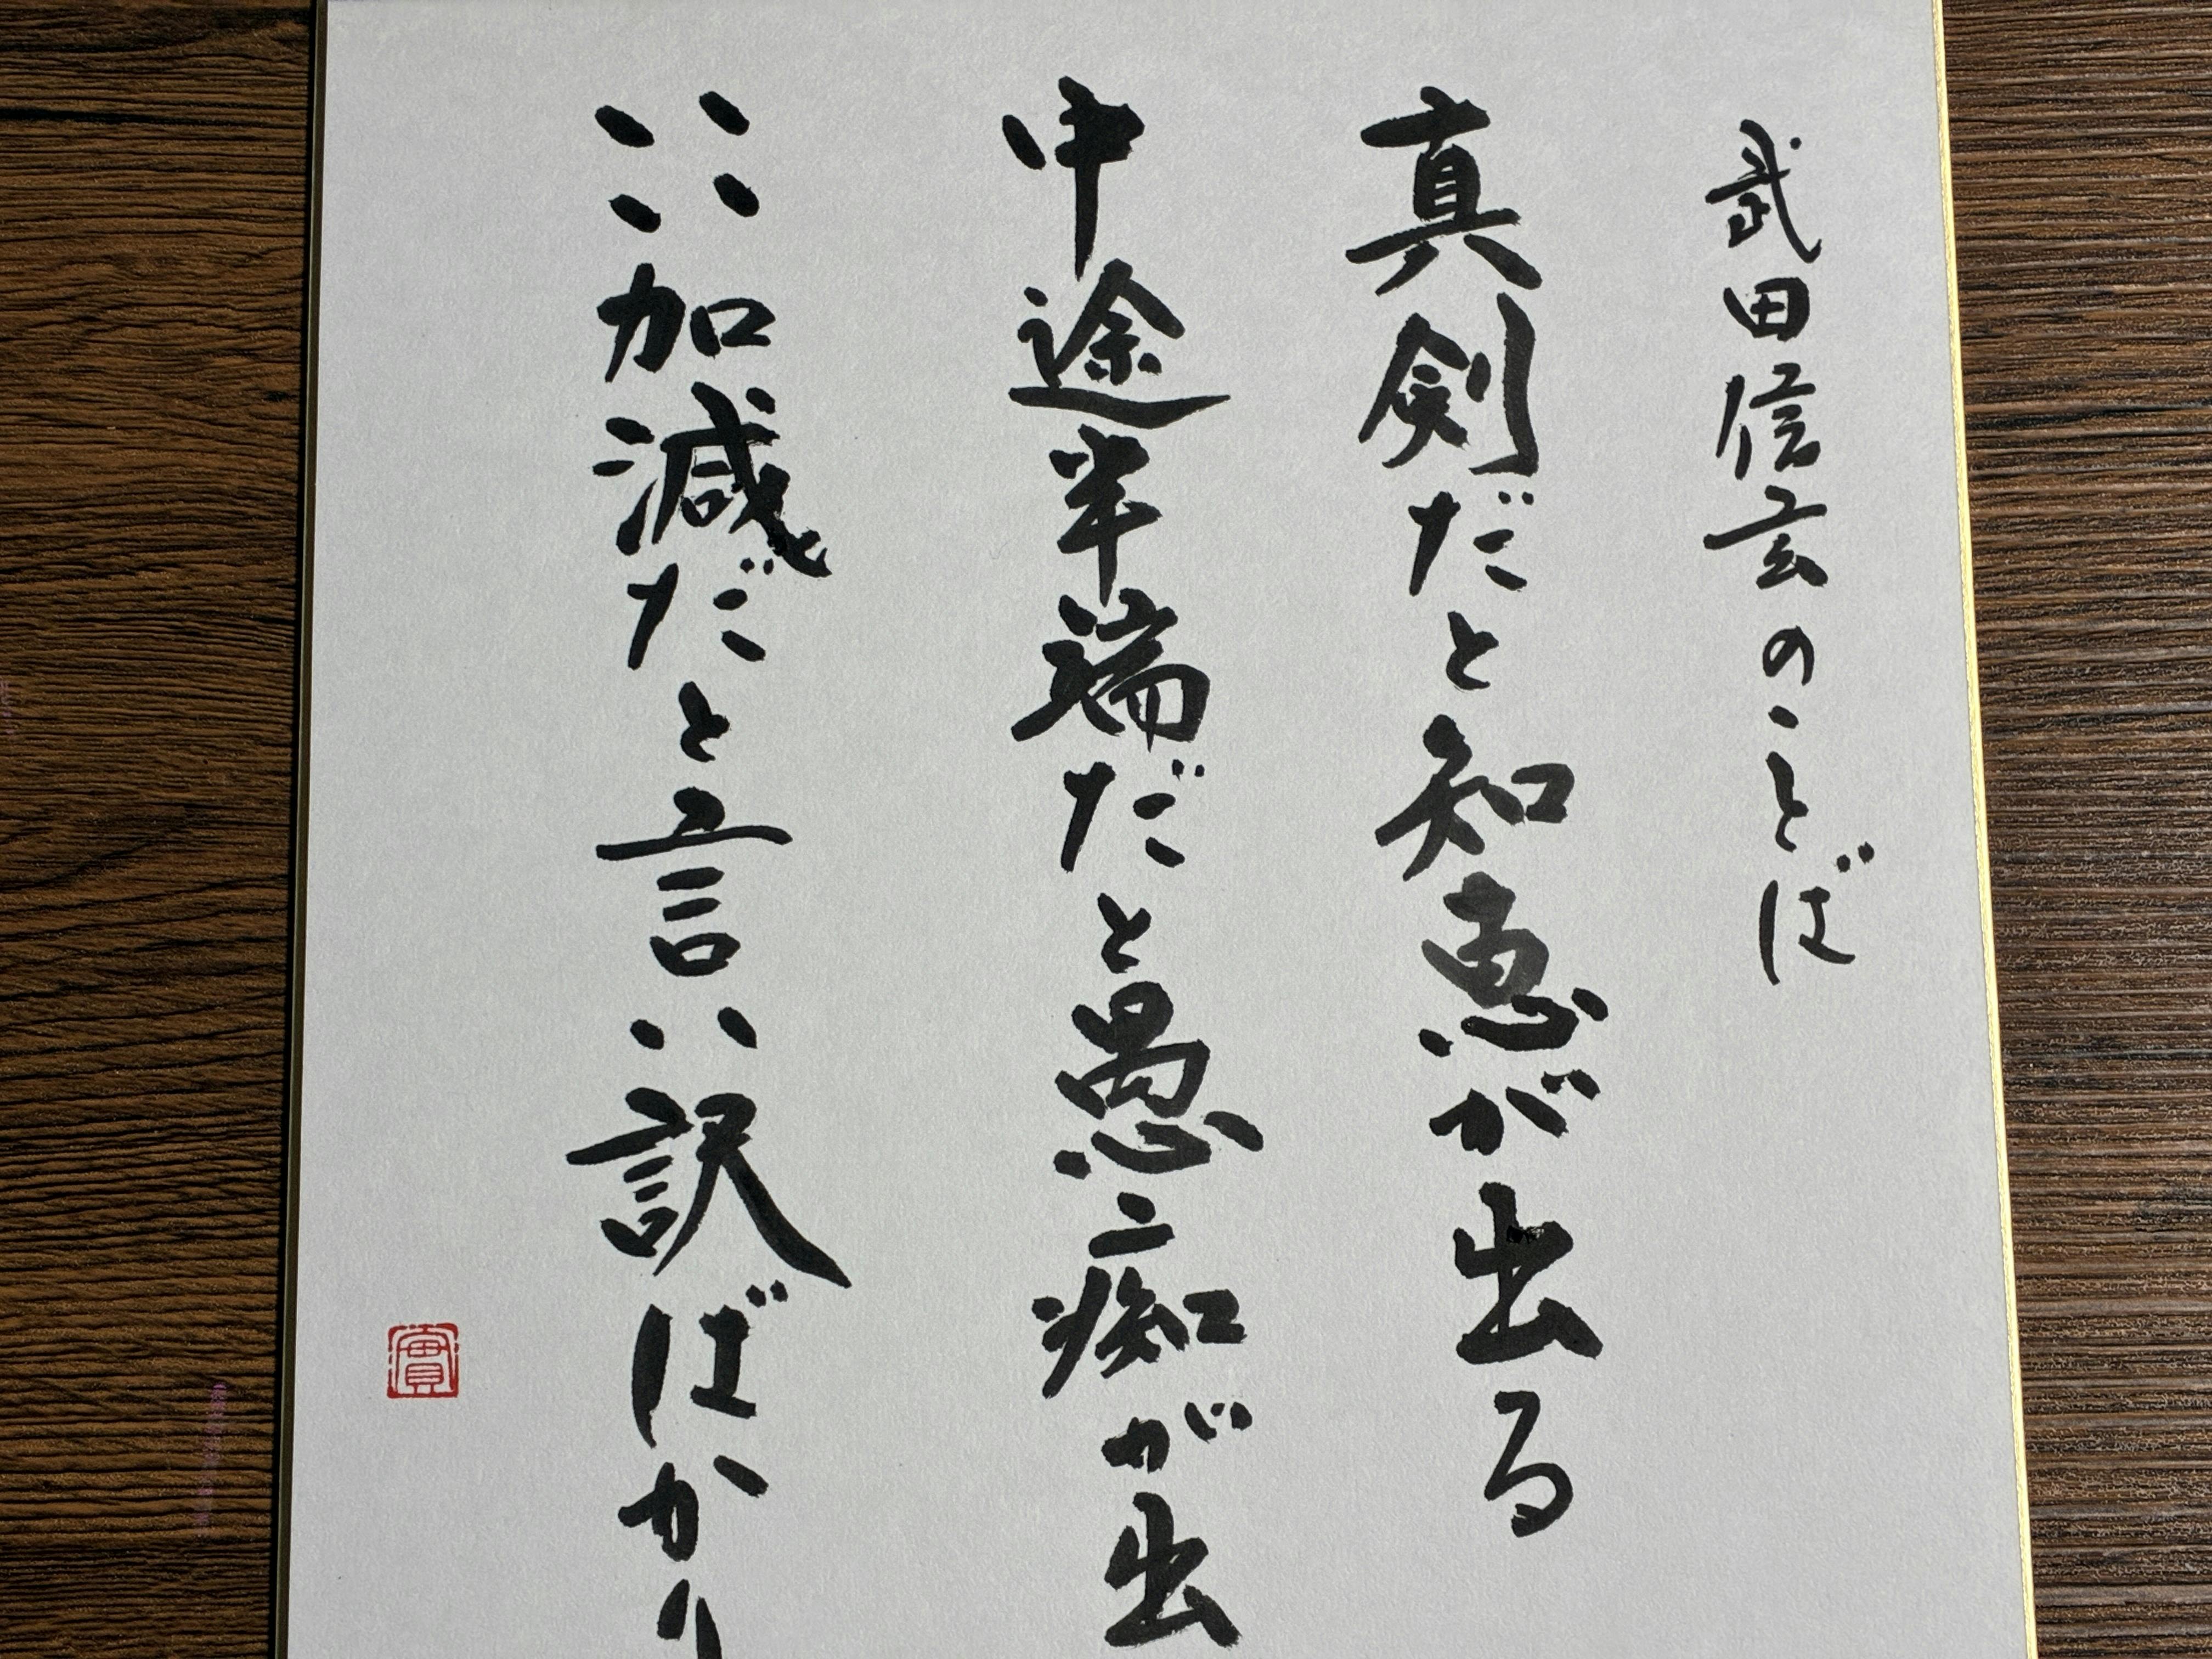 武田信玄のことば
真剣だと知恵が出る
中途半端だと愚痴が出
いい加減だと言い訳ばかり
實